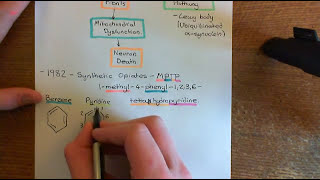 Mitochondrial
Dysfunction
Neuron
Death
Lewy body
(Ubiquitinated
α-synuclein)
-1982 - Synthetic Opiates - MPTP
1-methyl-4-phenyl-1,2,3,6-
Benzene
Pyridine
tetrahydropyridine